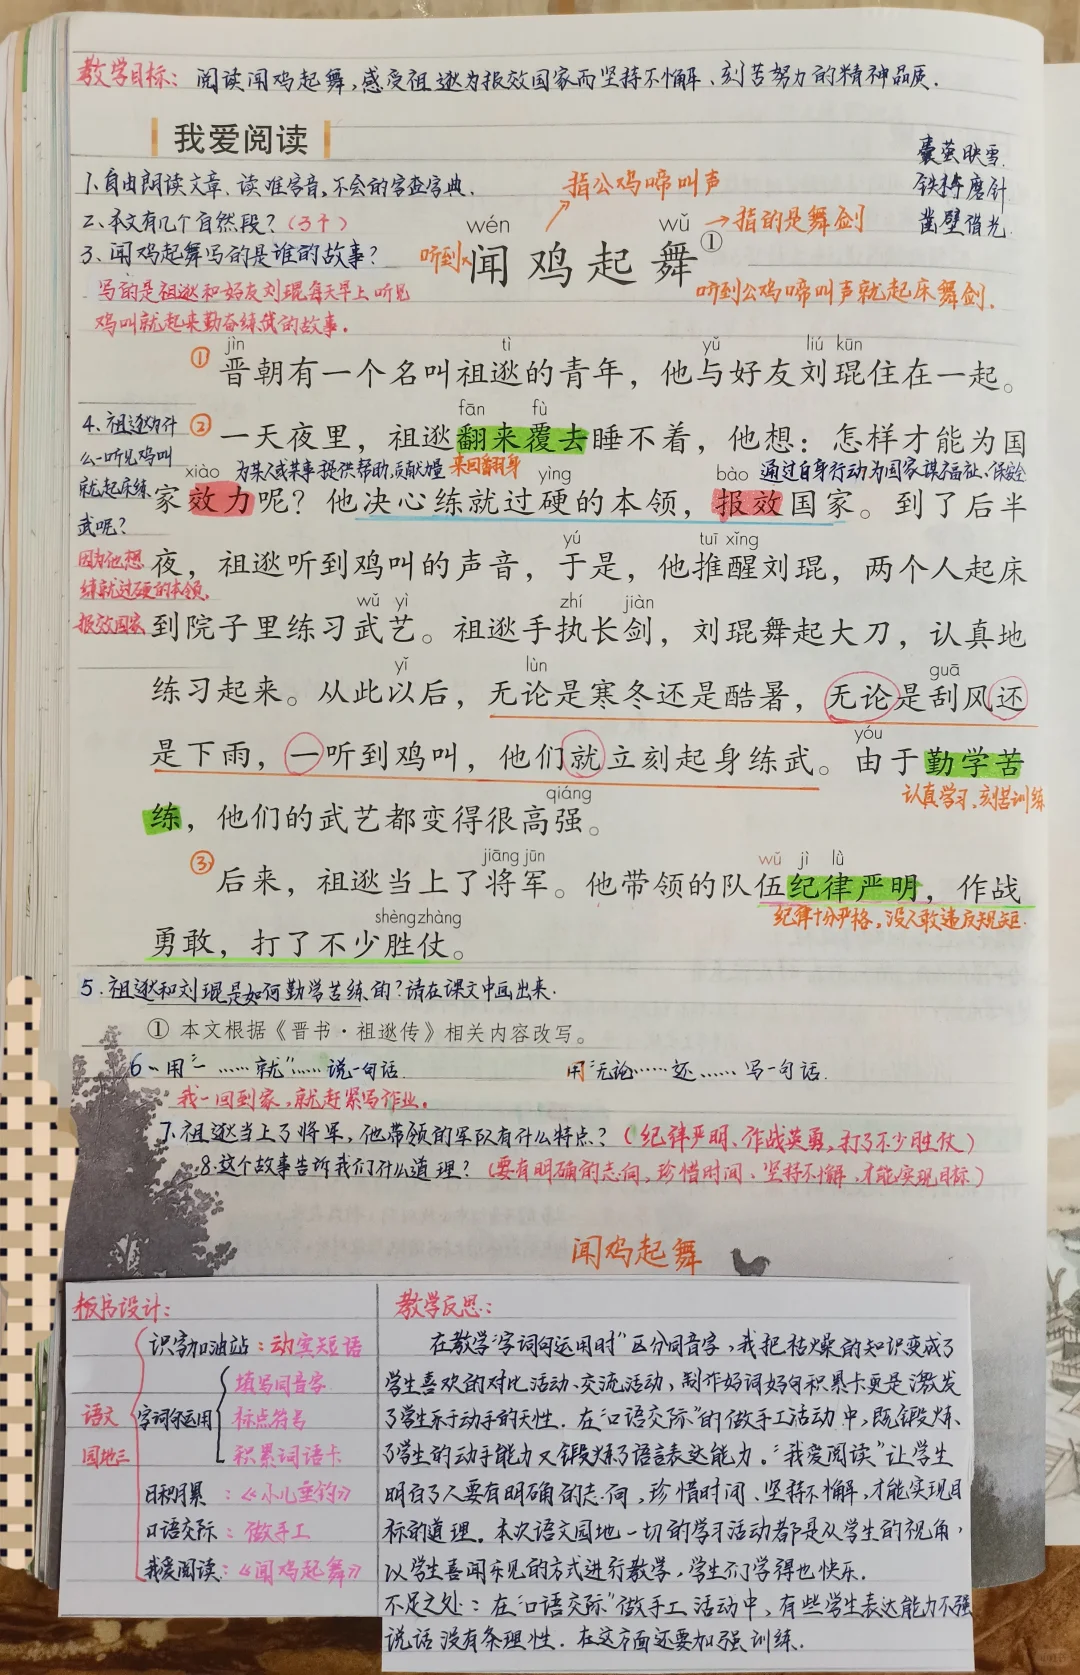 教学目标：阅读闻鸡起舞，感受祖逖为报效国家而坚持不懈、刻苦努力的精神品质．
我爱阅读
囊萤映雪．
铁杵磨针
凿壁借光．
1、自由朗读文章、读准字音，不会的字查字典．
2、本文有几个自然段？（3个）
3、闻鸡起舞写的是谁的故事？
写的是祖逖和好友刘琨每天早上听见
鸡叫就起来勤奋练武的故事．
指公鸡啼叫声
wén wǔ
→指的是舞剑
听到
闻鸡起舞①
听到公鸡啼叫声就起床舞剑．
jìn tì yǔ liú kūn
①晋朝有一个名叫祖逖的青年，他与好友刘琨住在一起。
fān fù
②一天夜里，祖逖翻来覆去睡不着，他想：怎样才能为国
为某人或某事提供帮助，贡献力量 来回翻身 通过自身行动为国家谋福祉、保安全
xiào yìng bào
家效力呢？他决心练就过硬的本领，报效国家。到了后半
yú tuī xǐng
夜，祖逖听到鸡叫的声音，于是，他推醒刘琨，两个人起床
wǔ yì zhí jiàn
到院子里练习武艺。祖逖手执长剑，刘琨舞起大刀，认真地
yǐ lùn guā
练习起来。从此以后，无论是寒冬还是酷暑，无论是刮风还
yóu
是下雨，一听到鸡叫，他们就立刻起身练武。由于勤学苦
认真学习，刻苦训练
qiáng
练，他们的武艺都变得很高强。
4、祖逖为什
么一听见鸡叫
就起床练
武呢？
因为他想
练就过硬的本领，
报效国家
jiāng jūn wǔ jì lǜ
③后来，祖逖当上了将军。他带领的队伍纪律严明，作战
纪律十分严格，没人敢违反规矩．
shèng zhàng
勇敢，打了不少胜仗。
5．祖逖和刘琨是如何勤学苦练的？请在课文中画出来．
① 本文根据《晋书·祖逖传》相关内容改写。
6、用“一……就”……说一句话． 用“无论……还……写一句话．
我一回到家，就赶紧写作业。
7、祖逖当上了将军，他带领的军队有什么特点？（纪律严明、作战英勇，打了不少胜仗）
8．这个故事告诉我们什么道理？（要有明确的志向，珍惜时间、坚持不懈，才能实现目标）
闻鸡起舞
板书设计：
语文
园地三
识字加油站：动宾短语
字词句运用
填写同音字
标点符号
积累词语卡
日积月累：《小儿垂钓》
口语交际：做手工
我爱阅读：《闻鸡起舞》
教学反思：
在教学“字词句运用时”区分同音字，我把枯燥的知识变成了
学生喜欢的对比活动、交流活动，制作好词好句积累卡更是激发
了学生乐于动手的天性．在“口语交际”的做手工活动中，既锻炼
了学生的动手能力又锻炼了语言表达能力。“我爱阅读”让学生
明白了人要有明确的志向，珍惜时间、坚持不懈，才能实现目
标的道理．本次语文园地一切的学习活动都是从学生的视角，
以学生喜闻乐见的方式进行教学，学生们学得也快乐．
不足之处：在“口语交际”做手工活动中，有些学生表达能力不强
说话没有条理性．在这方面还要加强训练．